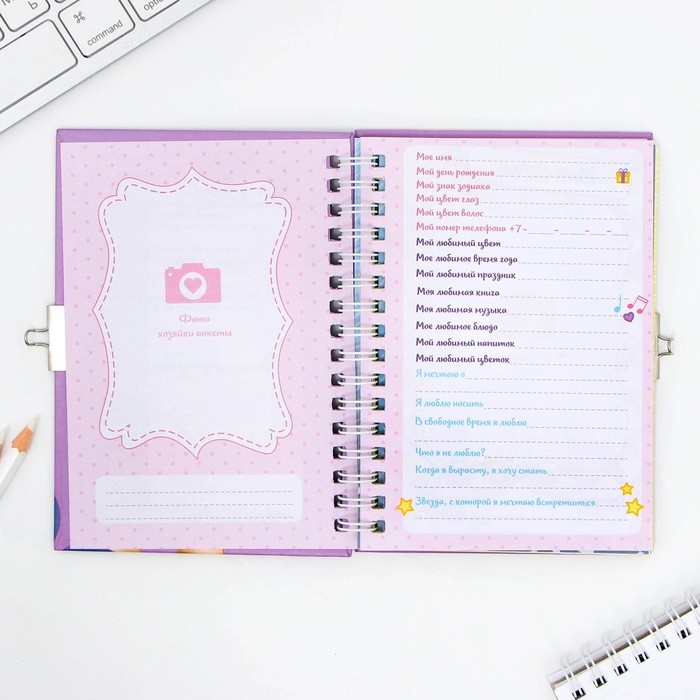 Ю
command
option
Фото
хозяйки анкеты
Мое имя
Мой день рождения
Мой знак зодиака
Мой цвет глаз
Мой цвет волос
Мой номер телефона +7-___-___-__-__
Мой любимый цвет
Мое любимое время года
Мой любимый праздник
Моя любимая книга
Моя любимая музыка
Мое любимое блюдо
Мой любимый напиток
Мой любимый цветок
Я мечтаю о
Я люблю носить
В свободное время я люблю
Что я не люблю?
Когда я вырасту, я хочу стать
Звезда, с которой я мечтаю встретиться